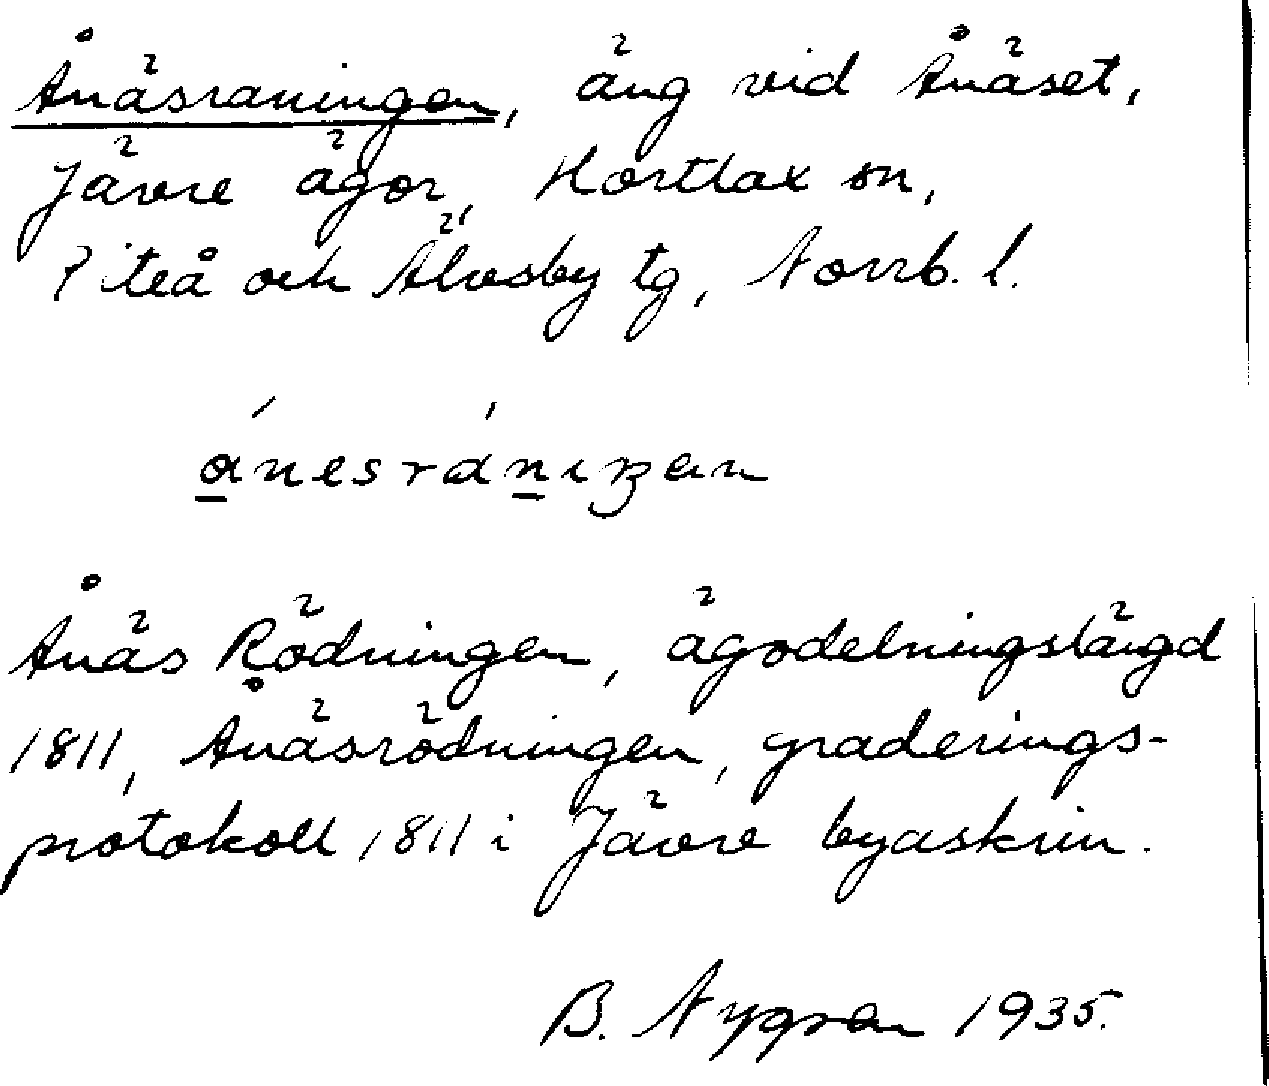 Ånäsraningen, äng vid Ånäset,
Jävre ägor, Hortlax sn,
Piteå och Älvsby tg, Norrb. l.
ánesrániŋen
Ånäs Rödningen, ägodelningslängd
1811, Ånäsrödningen, graderings-
protokoll 1811 i Jävre byaskrin.
B. Nygren 1935.